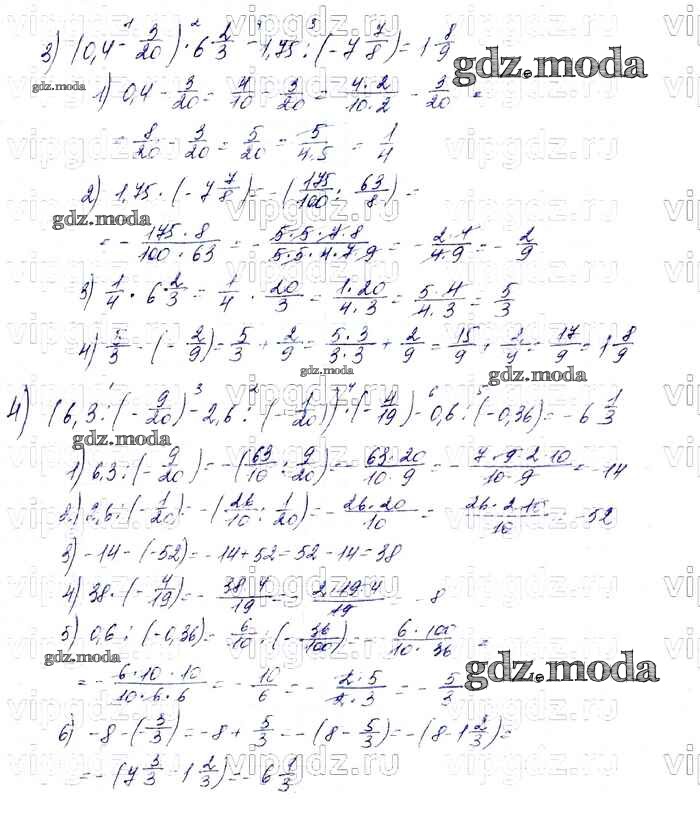 3) (0,4 - 3/20) · 6 2/3 - 1,75 : (-7 7/8) = 1 8/9
gdz.moda
gdz.moda
1) 0,4 - 3/20 = 4/10 - 3/20 = 4·2/10·2 - 3/20 =
= 8/20 - 3/20 = 5/20 = 5/4·5 = 1/4
2) 1,75 : (-7 7/8) = -(175/100 : 63/8) =
gdz.moda
= - 175·8/100·63 = - 5·5·7·8/5·5·4·7·9 = - 2·1/4·9 = - 2/9
3) 1/4 · 6 2/3 = 1/4 · 20/3 = 1·20/4·3 = 5·4/4·3 = 5/3
4) 5/3 - (- 2/9) = 5/3 + 2/9 = 5·3/3·3 + 2/9 = 15/9 + 2/9 = 17/9 = 1 8/9
gdz.moda
4) (6,3 : (- 9/20) - 2,6 : (- 1/20)) · (- 4/19) - 0,6 : (-0,36) = - 6 1/3
gdz.moda
1) 6,3 : (- 9/20) = -(63/10 : 9/20) = - 63·20/10·9 = - 7·9·2·10/10·9 = -14
2) 2,6 : (- 1/20) = -(26/10 : 1/20) = - 26·20/10 = - 26·2·10/10 = -52
3) -14 - (-52) = -14 + 52 = 52 - 14 = 38
4) 38 · (- 4/19) = - 38·4/19 = - 2·19·4/19 = -8
5) 0,6 : (-0,36) = 6/10 : (- 36/100) = - 6·100/10·36 =
gdz.moda
gdz.moda
= - 6·10·10/10·6·6 = - 10/6 = - 2·5/2·3 = - 5/3
6) -8 - (- 5/3) = -8 + 5/3 = -(8 - 5/3) = -(8 - 1 2/3) =
= -(7 3/3 - 1 2/3) = - 6 1/3